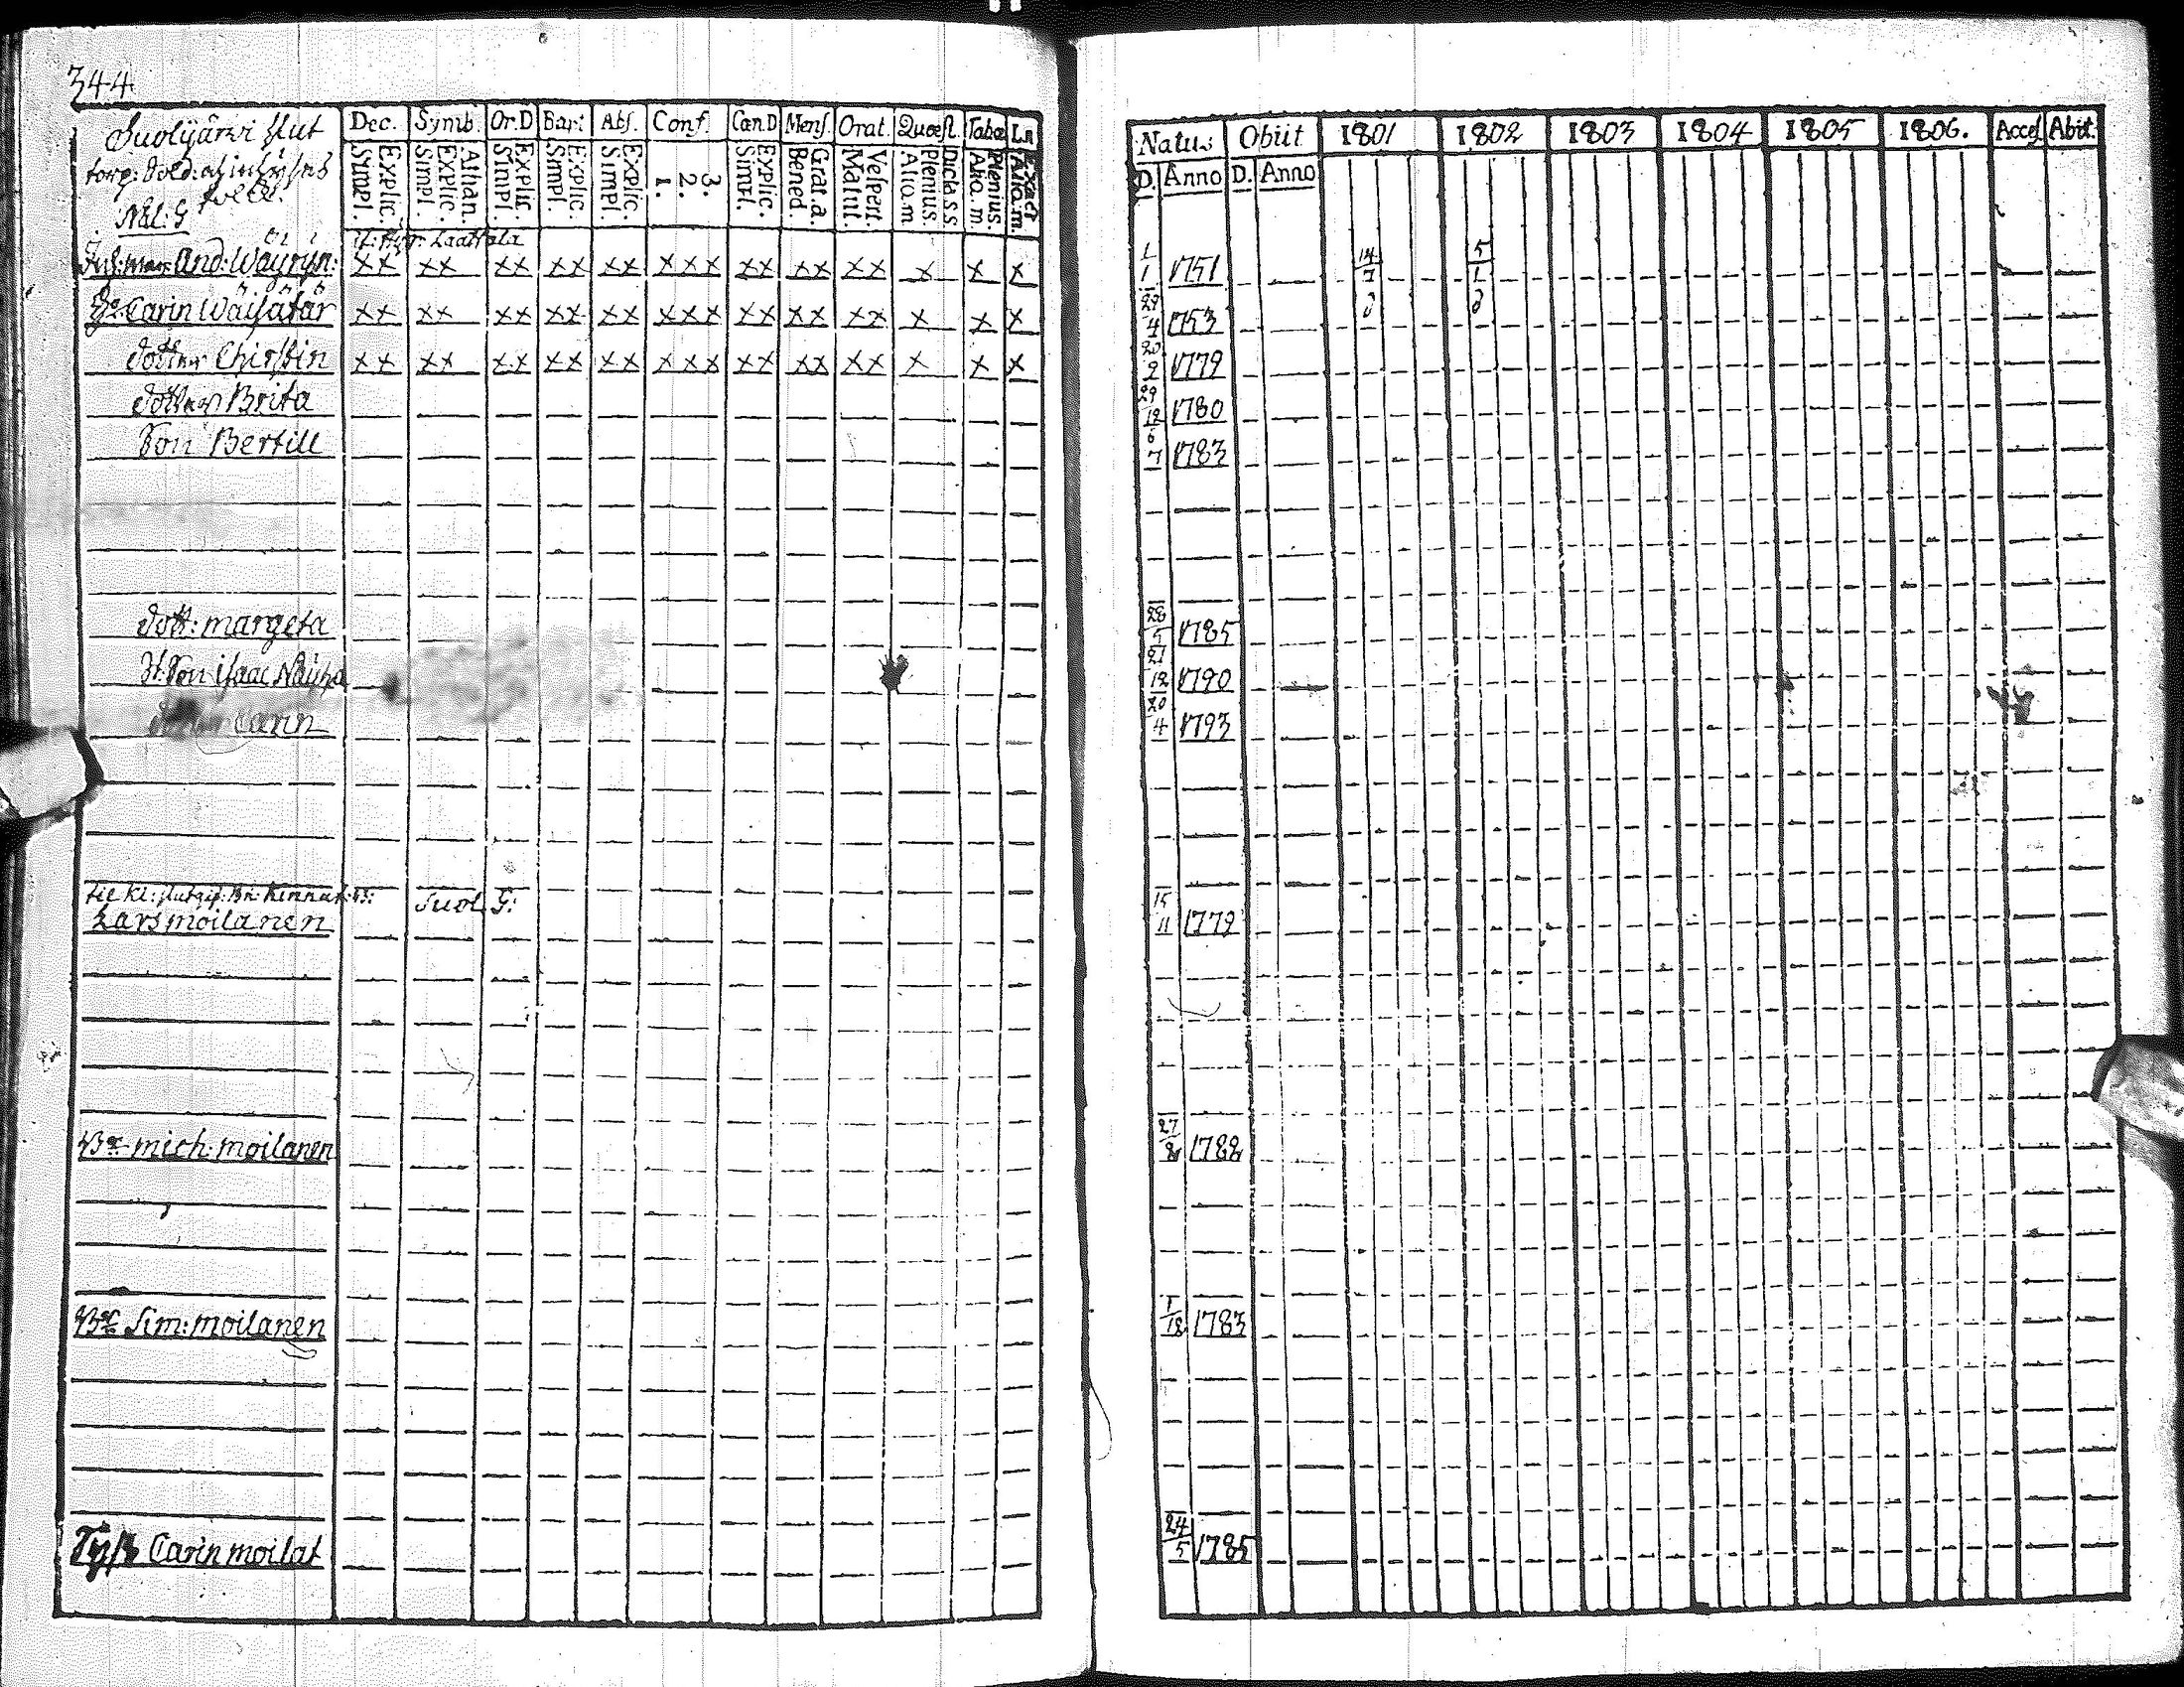 344
Suolijärvi slut
torp:
No 1: G
Dec. Symb. Or.D Bapt Abs. Conf. Can.D Mens. Orat. Quæst. Tabæ
Simpl. Explic. Simpl. Explic. Athan. Simpl. Explic. Simpl. Explic. Simpl. Explic. 1. 2. 3. Simpl. Explic. Bened. Grat. a. Matut. Vespert. Alio. m Plenius. Dicta s s. Alio. m. Plenius. Alio. m. Exact
Natus Obiit 1801 1802 1803 1804 1805 1806. Access. Abit.
D. Anno D. Anno
And: Wäyryn: xx xx xx xx xx xxx xx xx xx x x x 1/1 1751 14/7 5/1
Carin Wäisätär xx xx xx xx xx xxx xx xx xx x x x 29/4 1753
Dotter Chirstin xx xx xx xx xx xxx xx xx xx x x x 20/2 1779
Dotter Brita 29/12 1780
Son Bertill 6/7 1783
Dott: margeta 28/5 1785
Son isaac 21/12 1790
Carin 20/4 1793
Suol. G:
Lars moilanen 15/11 1779
Br mich: moilanen 27/2 1782
Br Sim: moilanen 1/12 1783
Syst Carin moilat 24/5 1785